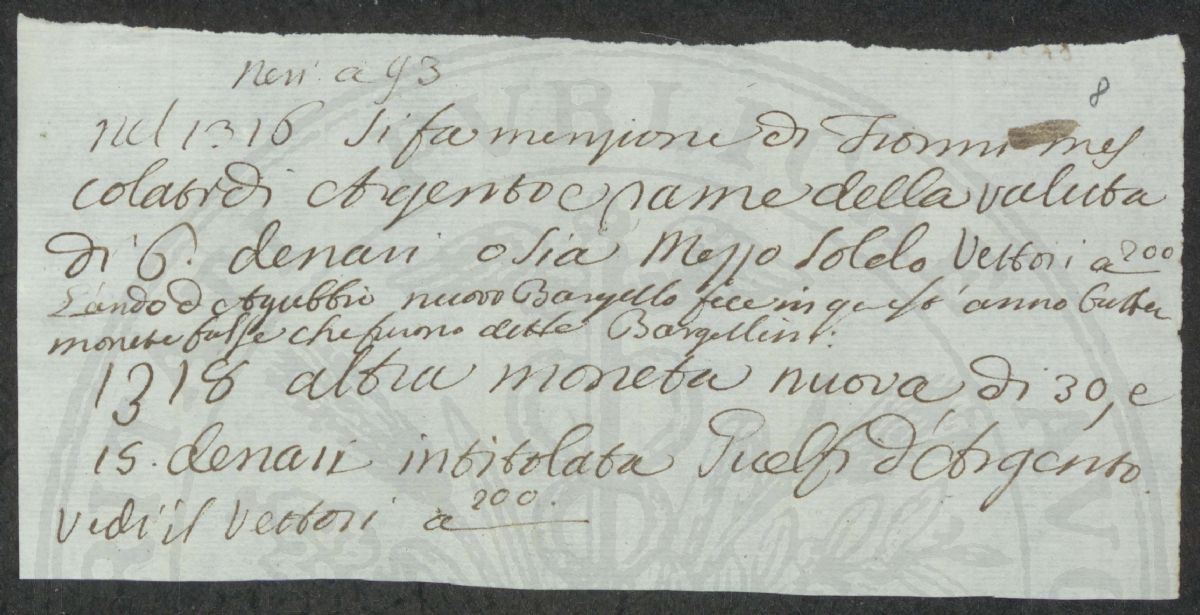 Neri a 93
8
nel 1316 si fa menzione di Fiorini mes
colati di Argento e rame della valuta
di 6. denari o sia Mezzo Soldo Vettori a 200
Lando d'Agubbio nuovo Bargello fece in quest'anno batter
monete false che furono dette Bargellini.
1318 altra moneta nuova di 30, e
15. denari intitolata Guelfi d'Argento.
Vedi il Vettori a 200.